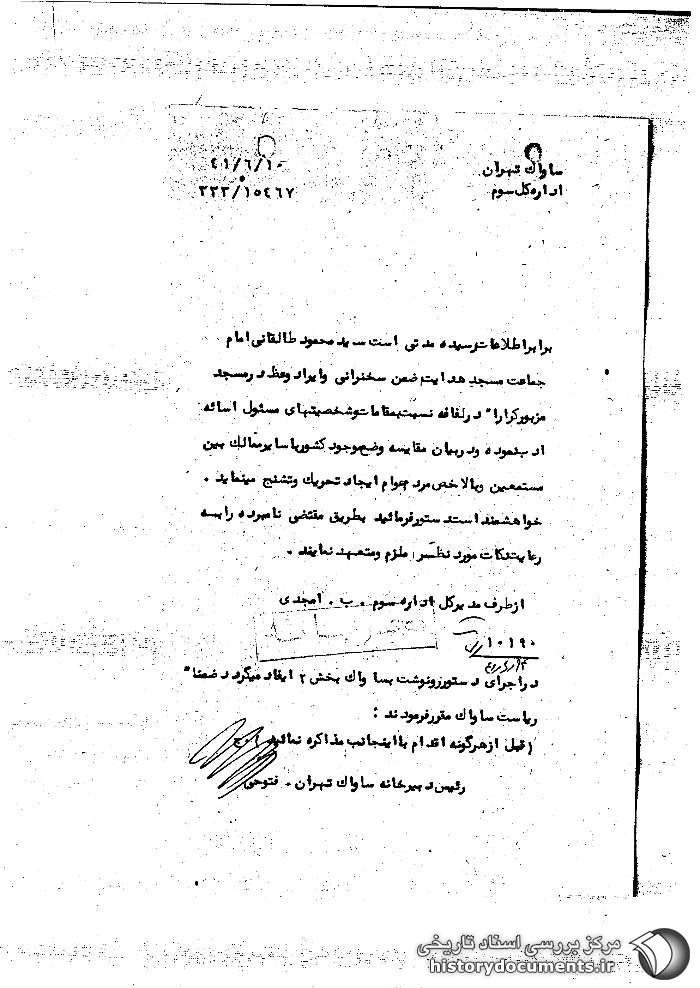 ساواك تهران
اداره كل سوم
٤١/٦/١٠
٣٢٣/١٥٤٦٧
برابر اطلاعات رسيده مدتی است سيد محمود طالقانی امام
جماعت مسجد هدايت ضمن سخنرانی و ايراد وعظ در مسجد
مزبور كرارا" در لفافه نسبت بمقامات و شخصيتهای مسئول اسائه
ادب نموده و در بيان مقايسه وضع موجود كشور با ساير ممالك بين
مستمعين و بالاخص مردم عوام ايجاد تحريك و تشنج مينمايد .
خواهشمند است دستور فرمائيد بطريق مقتضی نامبرده را به
رعايت نكات مورد نظر ملزم و متعهد نمايند .
از طرف مدير كل اداره سوم . ب . امجدی
١٠١٩٠
در اجرای دستور رونوشت بساواك بخش ٢ ايفاد ميگردد ضمنا"
رياست ساواك مقرر فرمودند :
(قبل از هرگونه اقدام با اينجانب مذاكره نمائيد ) . ج
رئيس دبيرخانه ساواك تهران . فتوحی
مرکز بررسی اسناد تاریخی
historydocuments.ir